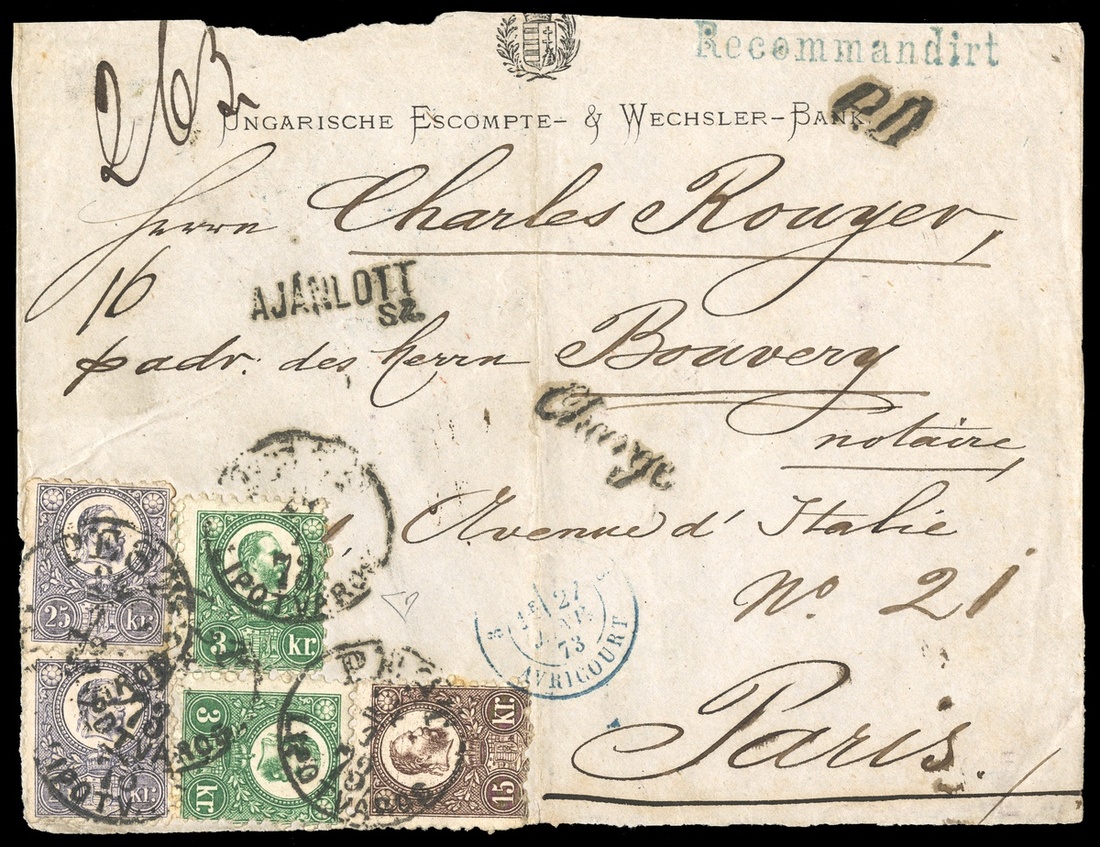 Recommandirt
263
P.D.
UNGARISCHE ESCOMPTE- & WECHSLER-BANK.
Herrn Charles Rouyer,
16
AJÁNLOTT
SZ.
p adr. des Herrn Bouvery
Chargé
notaire,
Avenue d' Italie
No. 21
Paris.
27
JANV.
73
AVRICOURT
25 kr.
3 kr.
73
LIPÓTVÁROS
3 kr.
15 kr.
kr.